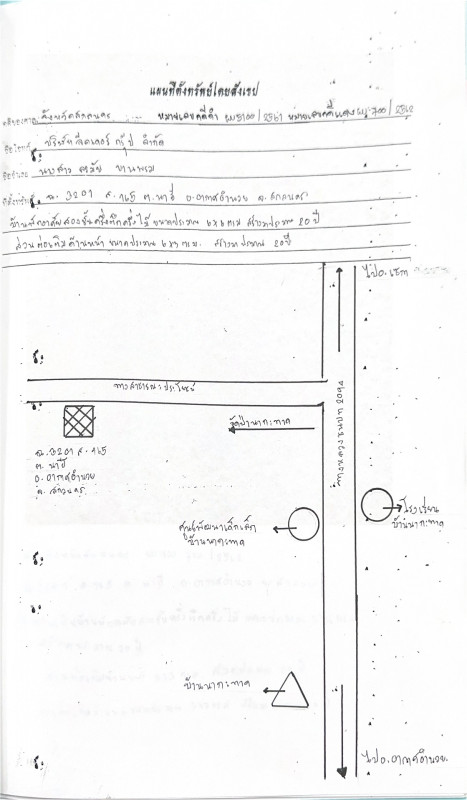 แผนที่ตั้งทรัพย์โดยสังเขป
จังหวัดสกลนคร หมายเลขคดีดำ ผบ5100/2561 หมายเลขคดีแดง ผบ700/2562
บริษัท ลีดเดอร์ กรุ๊ป จำกัด
นางสาว
ฉ. 3201 ล. 465 ต.นาฮี อ.อากาศอำนวย จ.สกลนคร
บ้านพักอาศัยสองชั้นครึ่งตึกครึ่งไม้ ขนาดประมาณ 6 x 6 ตาม สร้างประมาณ 20 ปี
ส่วนต่อเติมด้านหน้า ขนาดประมาณ 6 x 3 ตาม. สร้างมาประมาณ 20 ปี
ไป อ.เซกา
ทางสาธารณะประโยชน์
ฉ. 3201 ล. 465
ต. นาฮี
อ. อากาศอำนวย
จ. สกลนคร
วัดป่านากะทาด
ทางหลวงชนบท 2094
โรงเรียน
บ้านนากะทาด
ศูนย์พัฒนาเด็กเล็ก
บ้านนากะทาด
บ้านนากะทาด
ไป อ. อากาศอำนวย